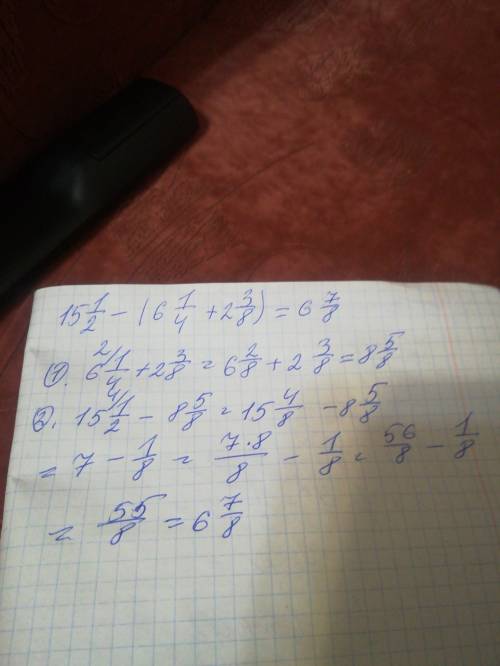 15 1/2 - (6 1/4 + 2 3/8) = 6 7/8
1. 6 2/ 1/4 + 2 3/8 = 6 2/8 + 2 3/8 = 8 5/8
2. 15 4/ 1/2 - 8 5/8 = 15 4/8 - 8 5/8
= 7 - 1/8 = 7·8/8 - 1/8 = 56/8 - 1/8
= 55/8 = 6 7/8